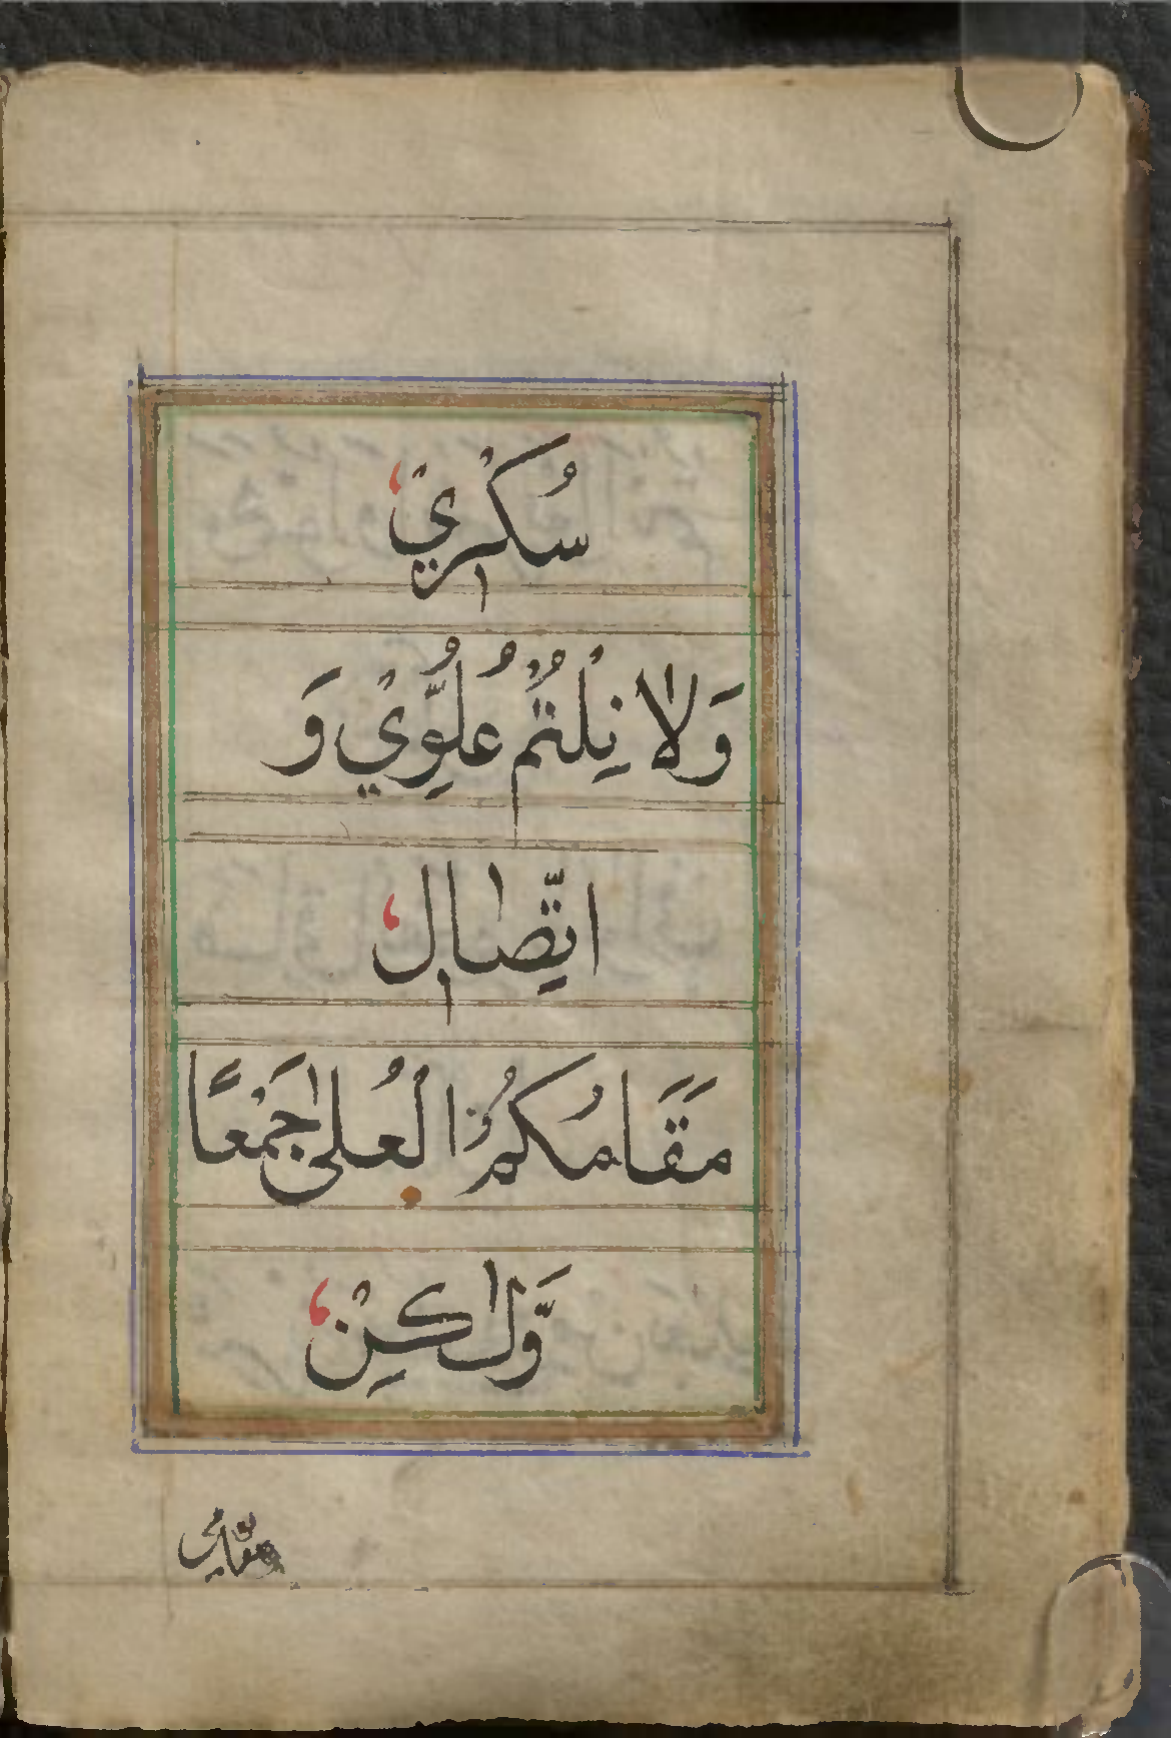 سُكْرِيْ
وَلَا نِلْتُمُ عُلُوِّيْ وَ
اتِّصَالِ
مَقَامُكُمُ الْعُلٰى جَمْعًا
وَّلٰكِنْ
مقامي